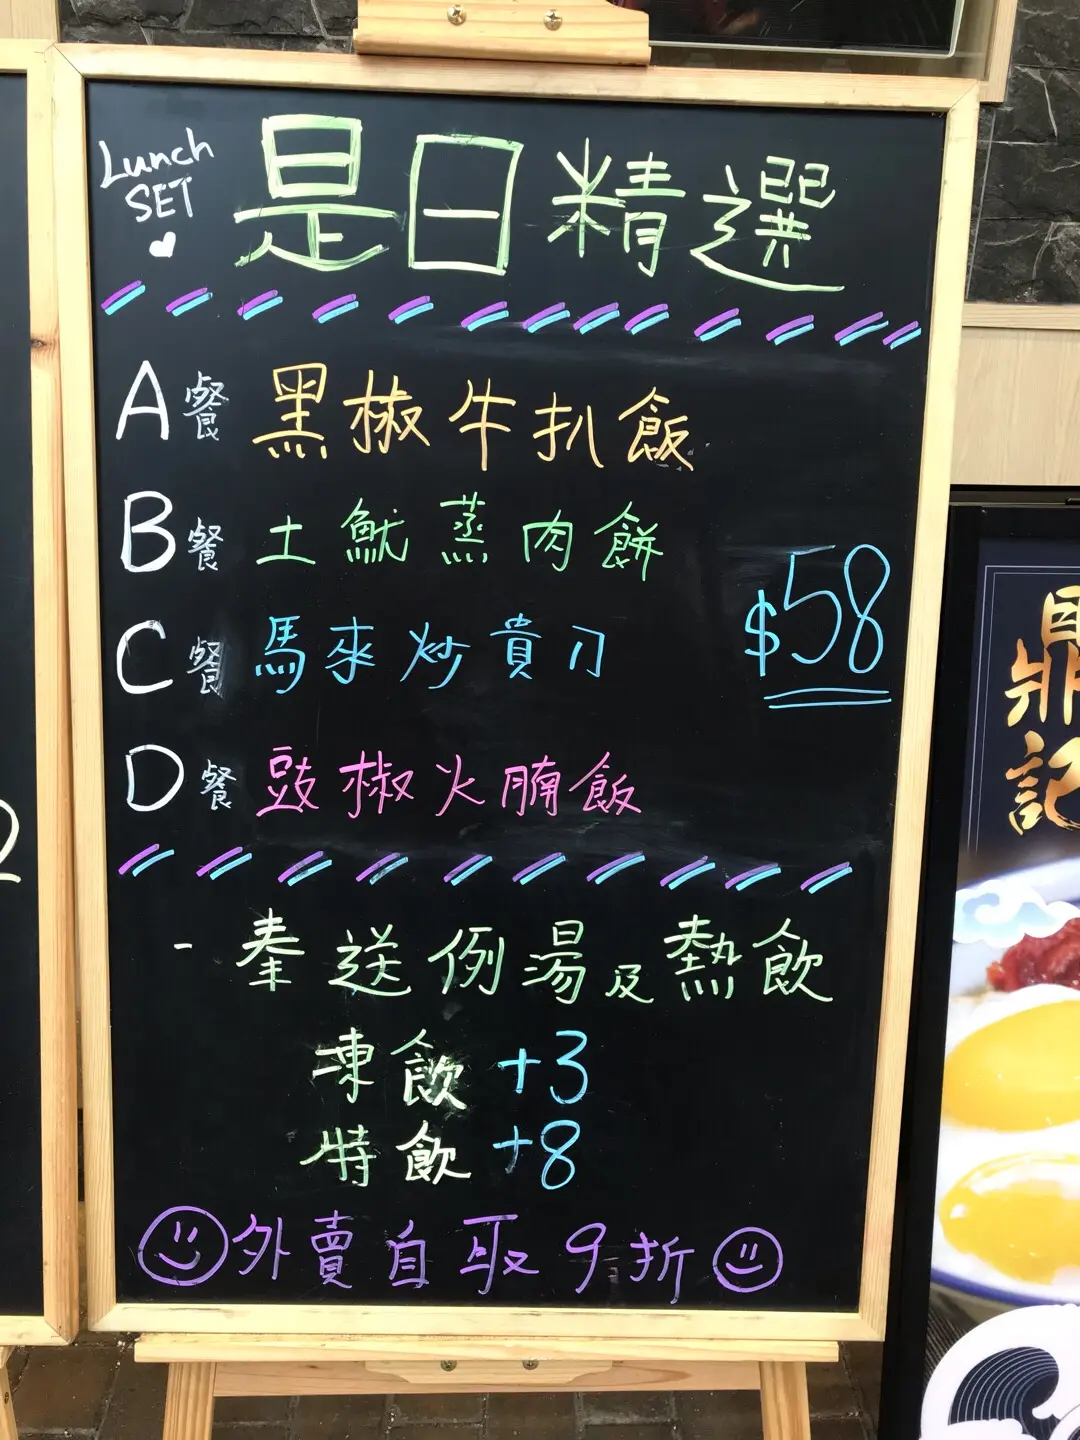 Lunch
SET
是日精選
A餐 黑椒牛扒飯
B餐 土魷蒸肉餅
C餐 馬來炒貴刀
D餐 豉椒火腩飯
$58
- 奉送例湯及熱飲
凍飲 +3
特飲 +8
外賣自取9折
記